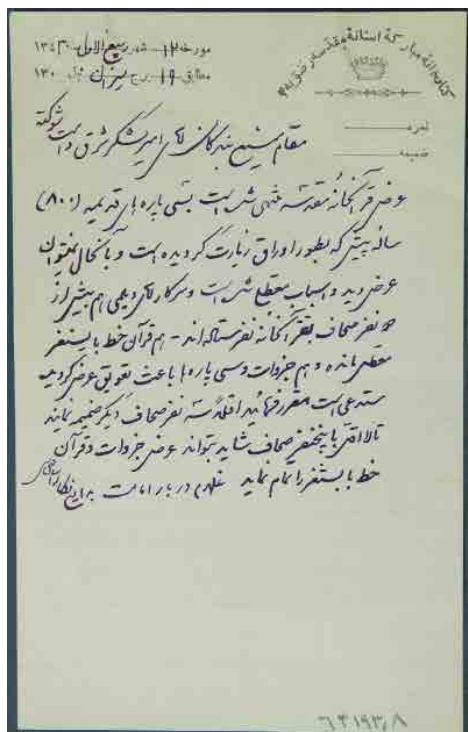 کتابخانه مبارکه آستانه مقدسه رضوی
مورخه ۱۲ شهر ربیع الاول ۱۳۴۳
مطابق ۱۹ برج میزان ۱۳۰
نمره
ضمیمه
مقام منیع بندگان آقای امیر لشکر شرق دامت شوکته
عرض قرآنخانه مقدسه منتهی شده است بسی پاره های قدیمه (۸۰۰)
ساله پیش که بطور اوراق زیارت گردیده است و با آنحال نمیتوان
عرض دید و اسباب معطلی شده است و سرکار آقای دیلمی هم بیش از
نفر صحاف بقرآنخانه نفرستاده اند - هم قرآن خط بایسنغر
معطل مانده و هم جزوات و سی پاره ها باعث تعویق عرض گردیده
مستدعی است مقرر فرمائید اقلا سه نفر صحاف دیگر ضمیمه نمایند
تا لااقل با پنجنفر صحاف شاید بتواند عرض جزوات و قرآن
خط بایسنغر را تمام نماید
۶۴۱۹۳٫۸